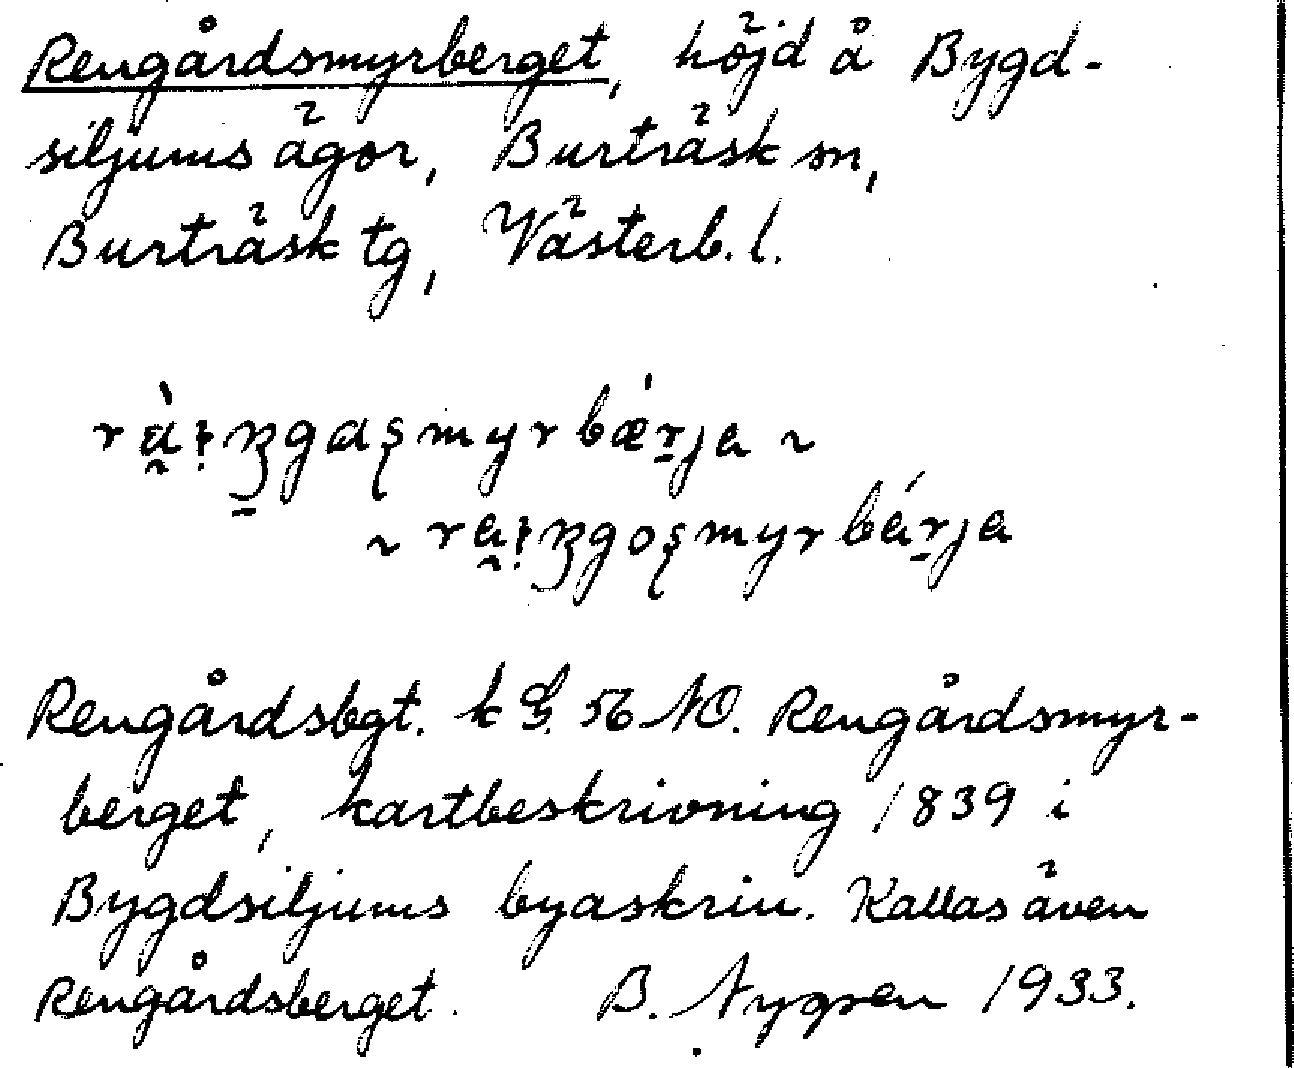 Rengårdsmyrberget, höjd å Bygd-
siljums ägor, Burträsk sn,
Burträsk tg, Västerb. l.
~
~
Rengårdsbgt. k G. 56 NO. Rengårdsmyr-
berget, kartbeskrivning 1839 i
Bygdsiljums byaskrin. Kallas även
Rengårdsberget. B. Nygren 1933.